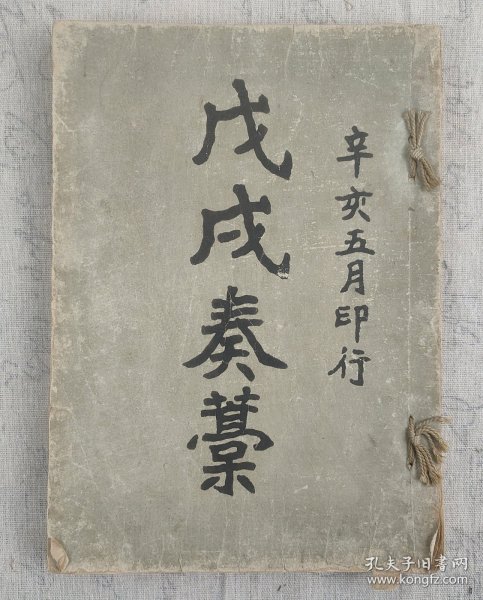 辛亥五月印行
戊戌奏藁
孔夫子旧书网
www.kongfz.com